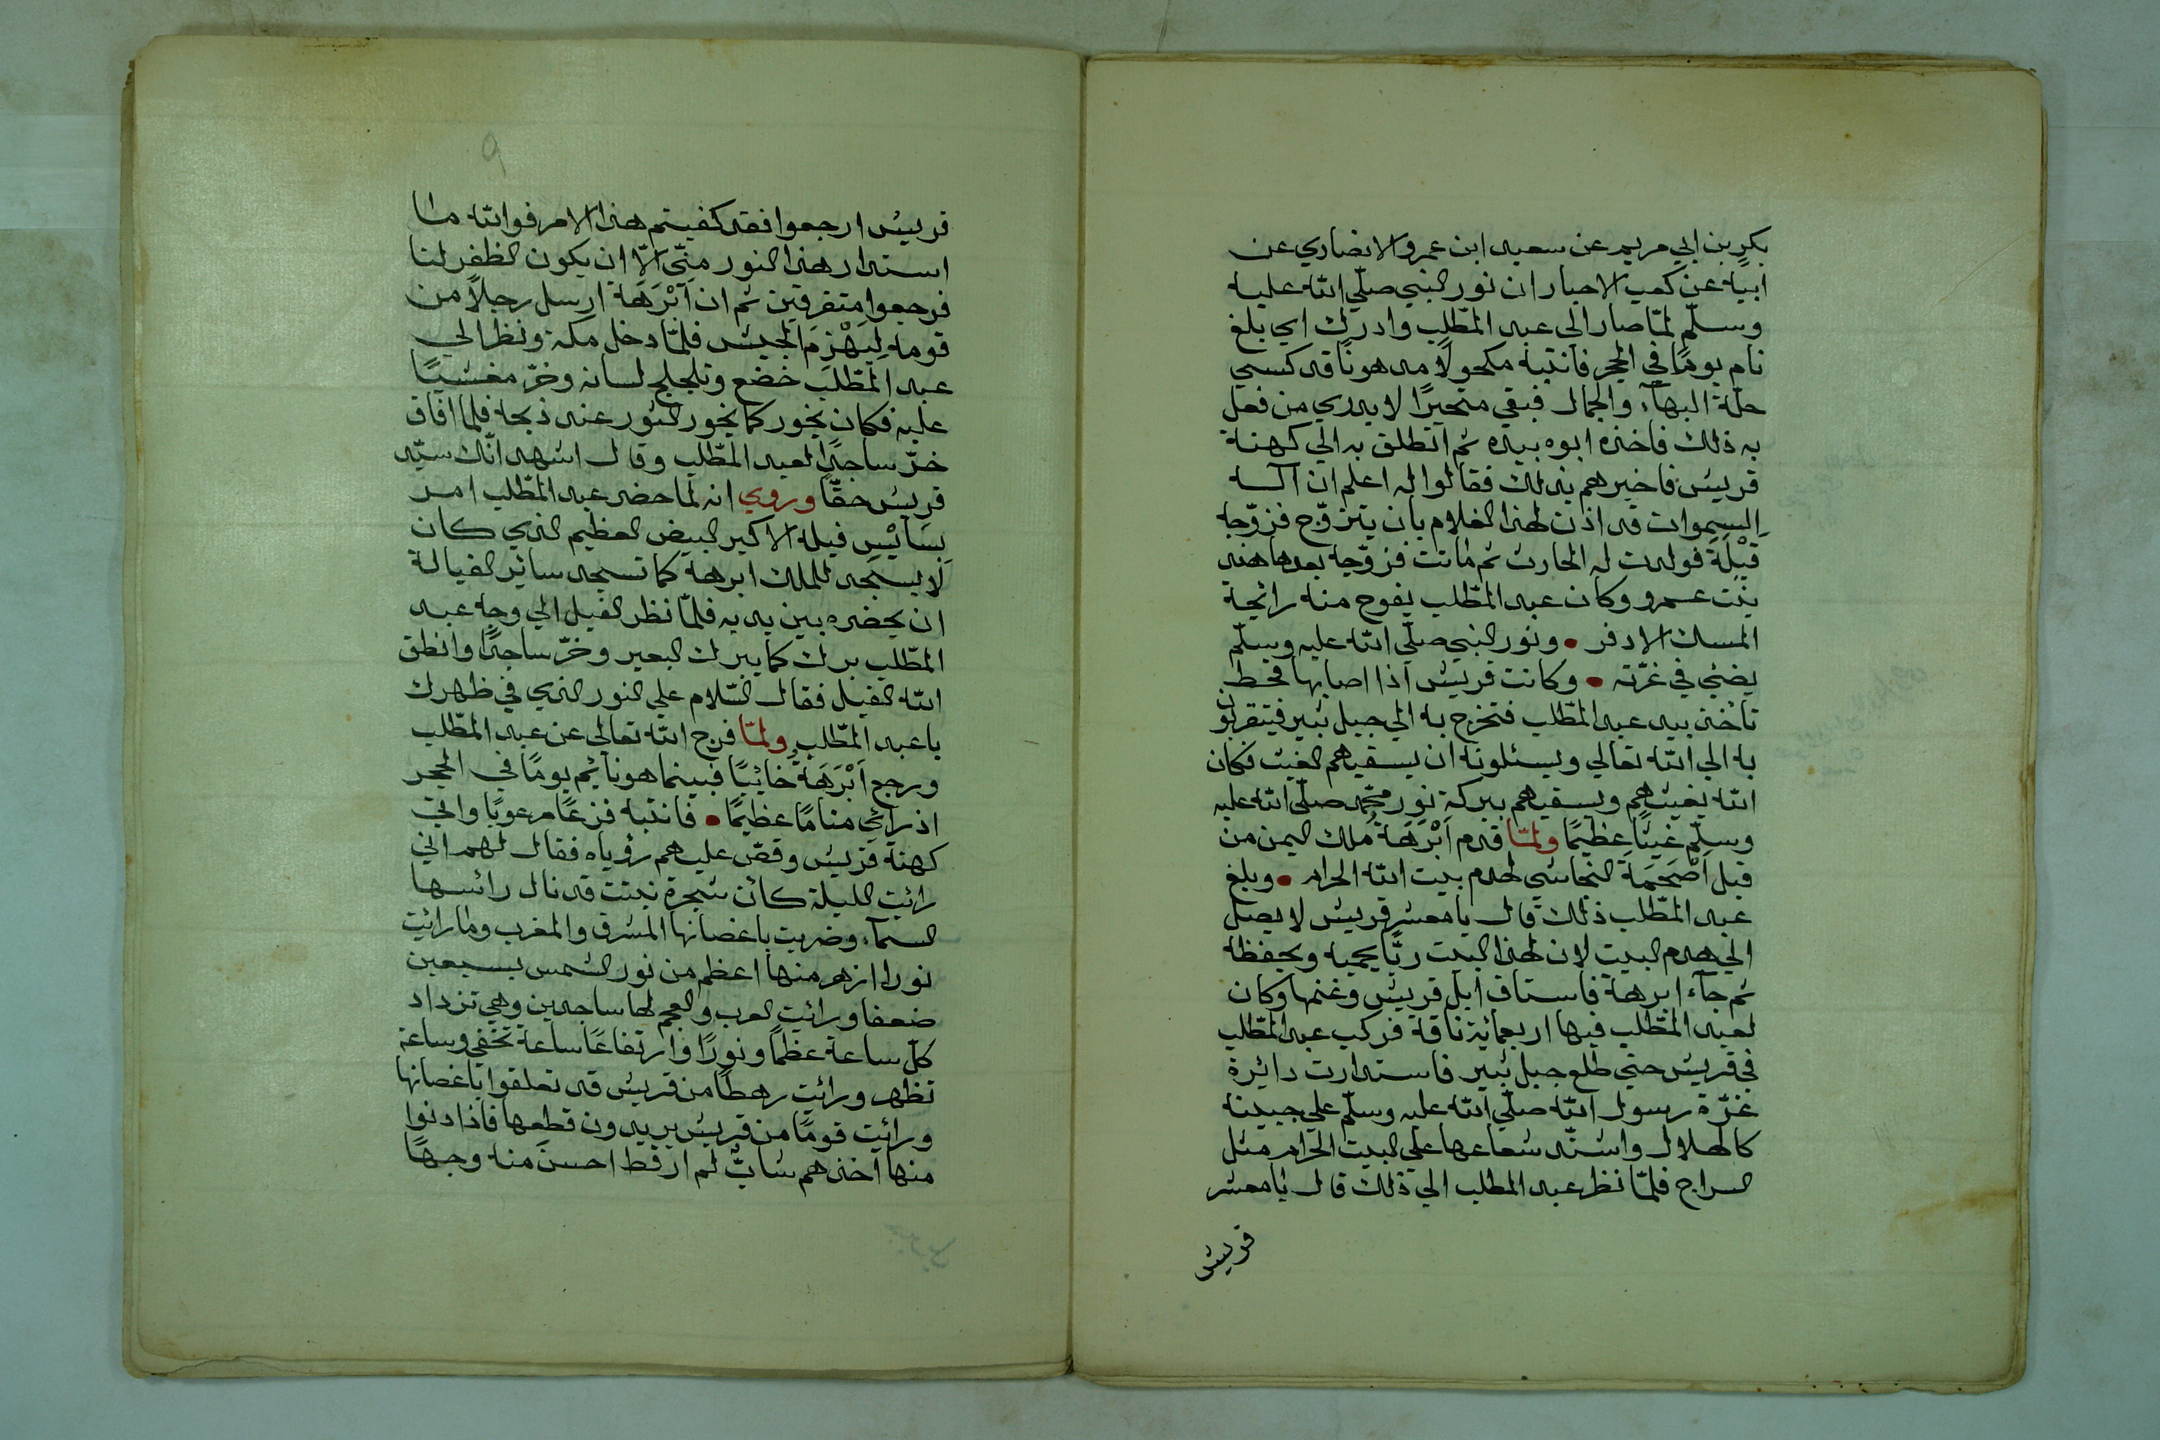 بكرٍ بن ابي مريم عن سعيد ابن عمرو الانصاري عن
ابيه عن كعب الاحبار ان نور النبي صلّي الله عليه
وسلّم لمّا صار الي عبد المطّلب وادرك اي بلغ
نام يومًا في الحجر فانتبه مكحولًا مدهونًا قد كسي
حلّة البهآء والجمال فبقي متحيرًا لا يدري من فعل
به ذلك فاخذه ابوه بيده ثم انطلق به الي كهنة
قريش فاخبرهم بذلك فقالوا له اعلم ان آله
السموات قد اذن لهذا الغلام بان يتزوّج فزوّجه
قَيْلَة فولدت له الحارث ثم ماتت فزوّجه بعدها هند
بنت عمرو وكان عبد المطّلب يفوح منه رائحة
المسك الادفر • ونور النبي صلّي الله عليه وسلّم
يضئ في غرّته • وكانت قريش اذا اصابها قحط
تأخذ بيد عبد المطّلب فتخرج به الي جبل ثبير فيتقربون
به الي الله تعالي ويسئلونه ان يسقيهم الغيث فكان
الله يغيثهم ويسقيهم ببركة نور محمّد صلّي الله عليه
وسلّم غيثًا عظيمًا ولمّا قدم اَبْرَهَة مَلك اليمن من
قبل اَصْحَمَة النجاشي لهدم بيت الله الحرام • وبلغ
عبد المطّلب ذلك قال يا معشر قريش لا يصل
الي هدم البيت لان لهذا البيت ربًّا يحميه ويحفظه
ثم جآء ابرهة فاستاق ابل قريش وغنمها وكان
لعبد المطّلب فيها اربعمائة ناقة فركب عبد المطّلب
في قريش حتي طلع جبل ثبير فاستدارت دائرة
غرّة رسول الله صلّي الله عليه وسلّم علي جبينه
كالهلال واشتّد شعاعها علي البيت الحرام مثل
السراج فلمّا نظر عبد المطلب الي ذلك قال يا معشر
قريش
٩
قريش ارجعوا فقد كفيتم هذا الامر فوالله ما
استدار هذا النور منّي الّا ان يكون الظفر لنا
فرجعوا متفرقين ثم ان اَبْرَهَة ارسل رجلًا من
قومه لِيَهْزِمَ الجيش فلمّا دخل مكة ونظر الي
عبد المطّلب خضع وتلجلج لسانه وخرّ مغشيًا
عليه فكان يخور كما يخور الثور عند ذبحه فلما افاق
خرّ ساجدًا لعبد المطّلب وقال اشهد انّك سيّد
قريش حقًّا وروي انه لمّا حضر عبد المطّلب امر
بِسَائِسِ فيله الاكبر البيض العظيم الذي كان
لا يسجد للملك ابرهة كما تسجد سائر الفيالة
ان يحضره بين يديه فلمّا نظر الفيل الي وجه عبد
المطّلب برك كما يبرك البعير وخرّ ساجدًا وانطق
الله الفيل فقال السّلام علي النور الذي في ظهرك
يا عبد المطّلب ولمّا فرج الله تعالي عن عبد المطّلب
ورجع اَبْرَهَة خائبًا فبينما هو نائم يومًا في الحجر
اذ رائي منامًا عظيمًا • فانتبه فزعًا مرعوبًا واتي
كهنة قريش وقصّ عليهم رؤياه فقال لهم اني
رائيت الليلة كان شجرة نبتت قد نال رائسها
السمآء وضربت باغصانها المشرق والمغرب وما رائيت
نورا ازهر منها اعظم من نور الشمس بسبعين
ضعفا ورائيت العرب والعجم لها ساجدين وهي تزداد
كلّ ساعة عظمًا ونورًا وارتفاعًا ساعة تخفي وساعة
تظهر ورائيت رهطًا من قريش قد تعلقوا باغصانها
ورائيت قومًا من قريش يريدون قطعها فاذا دنوا
منها اخذهم شابٌّ لم ار قط احسن منه وجهًا